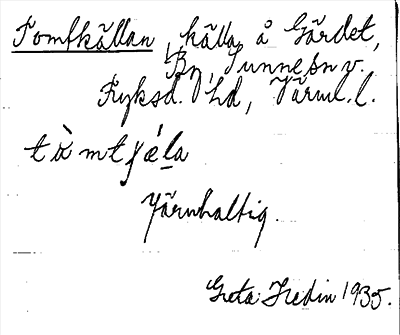 Tomtkällan, källa å Gärdet,
By, Sunne sn v.
Fryksd. hd, Värml. l.
tòmtɟǽla
Järnhaltig.
Greta Hedin 1935.